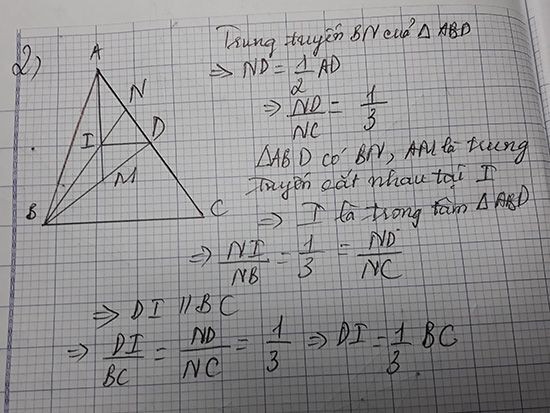 2)
Trung tuyến BN của Δ ABD
⇒ ND = 1/2 AD
⇒ ND/NC = 1/3
ΔABD có BN, AM là trung
tuyến cắt nhau tại I
⇒ I là trong tâm ΔABD
⇒ NI/NB = 1/3 = ND/NC
⇒ DI // BC
⇒ DI/BC = ND/NC = 1/3 ⇒ DI = 1/3 BC
A
N
I
D
M
B
C